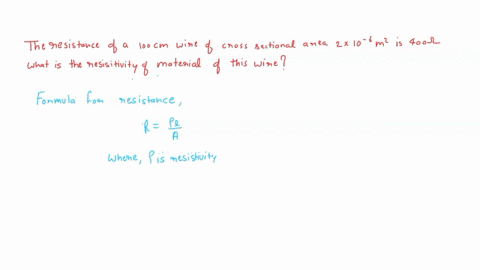 The resistance of a 100cm wire of cross sectional area 2 x 10⁻⁶ m² is 400Ω
what is the resisitivity of material of this wire?
Formula for resistance,
R = ρl/A
where, ρ is resistivity